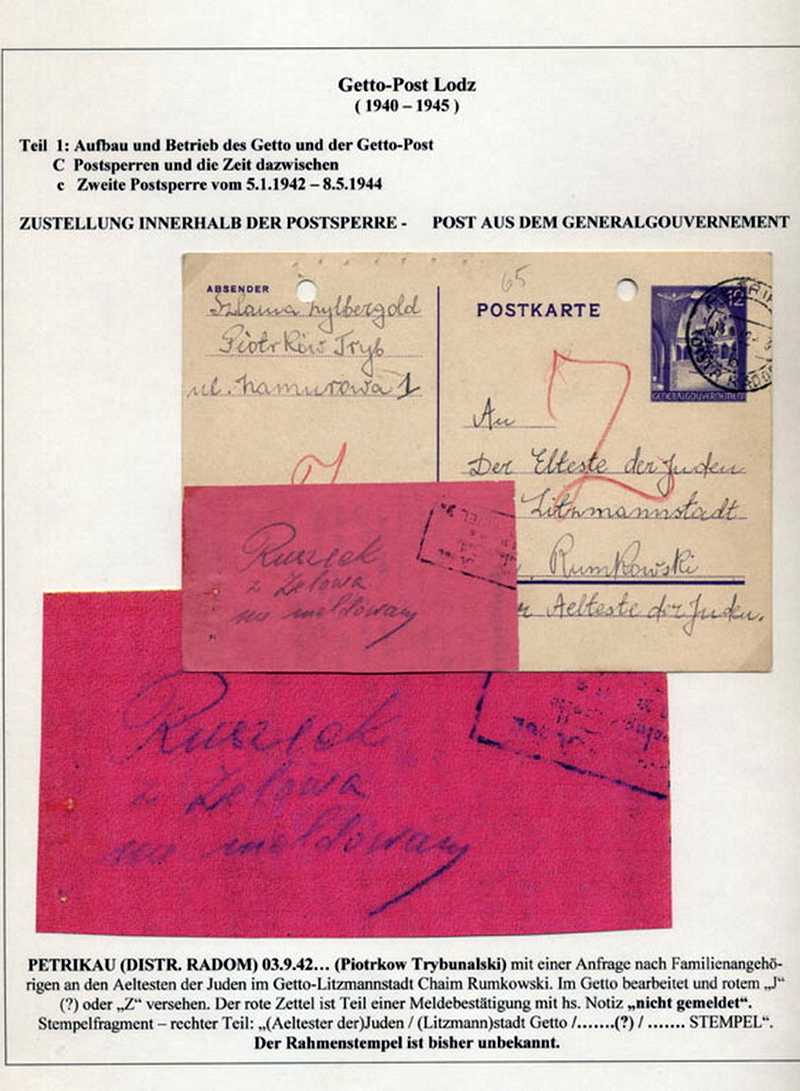 Getto-Post Lodz
( 1940 – 1945 )
Teil 1: Aufbau und Betrieb des Getto und der Getto-Post
C Postsperren und die Zeit dazwischen
c Zweite Postsperre vom 5.1.1942 – 8.5.1944
ZUSTELLUNG INNERHALB DER POSTSPERRE - POST AUS DEM GENERALGOUVERNEMENT
ABSENDER
Szlama Zylbergold
Piotrków Tryb
ul. Zamurowa 1
65
POSTKARTE
12
GENERALGOUVERNEMENT
An
Der Elteste der Juden
Litzmannstadt
Rumkowski
r Aelteste der Juden.
Z
Ruszek
z Zelowa
nie meldowany
Ruszek
z Zelowa
nie meldowany
PETRIKAU (DISTR. RADOM) 03.9.42… (Piotrkow Trybunalski) mit einer Anfrage nach Familienangehö-
rigen an den Aeltesten der Juden im Getto-Litzmannstadt Chaim Rumkowski. Im Getto bearbeitet und rotem „J“
(?) oder „Z“ versehen. Der rote Zettel ist Teil einer Meldebestätigung mit hs. Notiz „nicht gemeldet“.
Stempelfragment – rechter Teil: „(Aeltester der)Juden / (Litzmann)stadt Getto /…….(?) / ……. STEMPEL“.
Der Rahmenstempel ist bisher unbekannt.